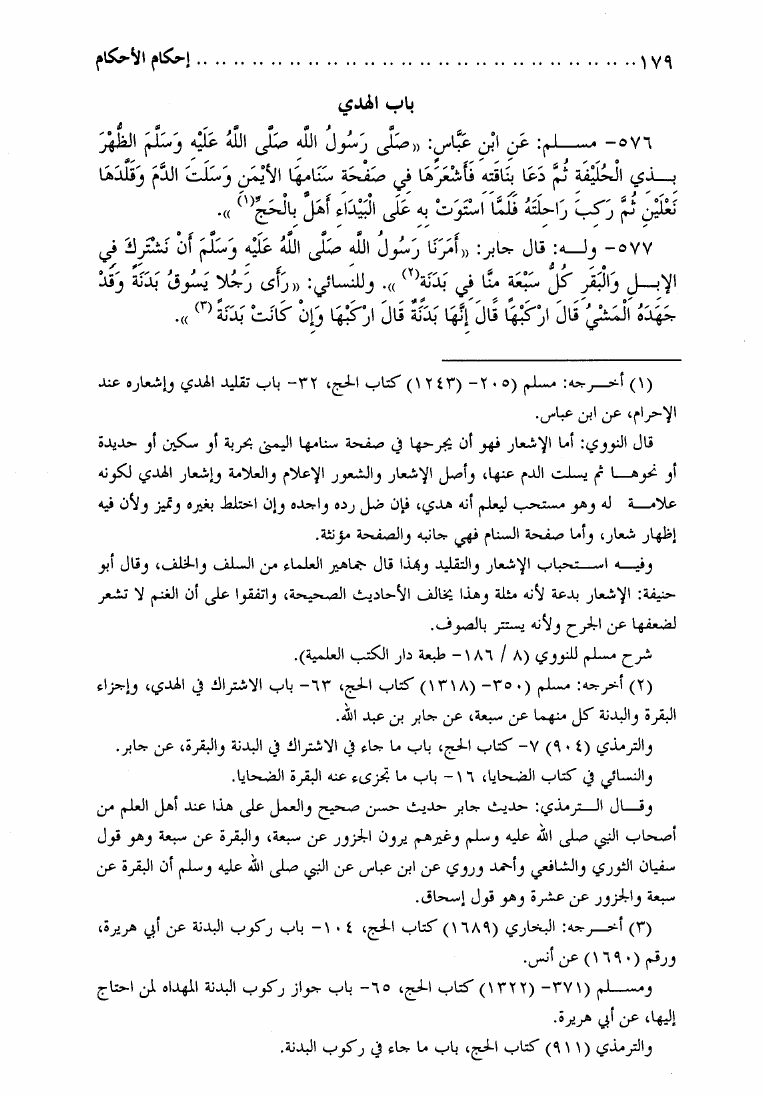 ١٧٩ .................................................. إحكام الأحكام
باب الهدي
٥٧٦- مسلم: عَنِ ابْنِ عَبَّاسٍ: «صَلَّى رَسُولُ اللَّهِ صَلَّى اللَّهُ عَلَيْهِ وَسَلَّمَ الظُّهْرَ
بِذِي الْحُلَيْفَةِ ثُمَّ دَعَا بِنَاقَتِهِ فَأَشْعَرَهَا فِي صَفْحَةِ سَنَامِهَا الأَيْمَنِ وَسَلَتَ الدَّمَ وَقَلَّدَهَا
نَعْلَيْنِ ثُمَّ رَكِبَ رَاحِلَتَهُ فَلَمَّا اسْتَوَتْ بِهِ عَلَى الْبَيْدَاءِ أَهَلَّ بِالْحَجِّ(١)».
٥٧٧- وله: قال جابر: «أَمَرَنَا رَسُولُ اللَّهِ صَلَّى اللَّهُ عَلَيْهِ وَسَلَّمَ أَنْ نَشْتَرِكَ فِي
الإِبِلِ وَالْبَقَرِ كُلُّ سَبْعَةٍ مِنَّا فِي بَدَنَةٍ(٢)». وللنسائي: «رَأَى رَجُلا يَسُوقُ بَدَنَةً وَقَدْ
جَهَدَهُ الْمَشْيُ قَالَ ارْكَبْهَا قَالَ إِنَّهَا بَدَنَةٌ قَالَ ارْكَبْهَا وَإِنْ كَانَتْ بَدَنَةً(٣)».
(١) أخرجه: مسلم (٢٠٥- (١٢٤٣) كتاب الحج، ٣٢- باب تقليد الهدي وإشعاره عند
الإحرام، عن ابن عباس.
قال النووي: أما الإشعار فهو أن يجرحها في صفحة سنامها اليمنى بحربة أو سكين أو حديدة
أو نحوها ثم يسلت الدم عنها، وأصل الإشعار والشعور الإعلام والعلامة وإشعار الهدي لكونه
علامة له وهو مستحب ليعلم أنه هدي، فإن ضل رده واجده وإن اختلط بغيره وتميز ولأن فيه
إظهار شعار، وأما صفحة السنام فهي جانبه والصفحة مؤنثة.
وفيه استحباب الإشعار والتقليد وبهذا قال جماهير العلماء من السلف والخلف، وقال أبو
حنيفة: الإشعار بدعة لأنه مثلة وهذا يخالف الأحاديث الصحيحة، واتفقوا على أن الغنم لا تشعر
لضعفها عن الجرح ولأنه يستتر بالصوف.
شرح مسلم للنووي (٨ / ١٨٦- طبعة دار الكتب العلمية).
(٢) أخرجه: مسلم (٣٥٠- (١٣١٨) كتاب الحج، ٦٣- باب الاشتراك في الهدي، وإجزاء
البقرة والبدنة كل منهما عن سبعة، عن جابر بن عبد الله.
والترمذي (٩٠٤) ٧- كتاب الحج، باب ما جاء في الاشتراك في البدنة والبقرة، عن جابر.
والنسائي في كتاب الضحايا، ١٦- باب ما تجزىء عنه البقرة الضحايا.
وقال الترمذي: حديث جابر حديث حسن صحيح والعمل على هذا عند أهل العلم من
أصحاب النبي صلى الله عليه وسلم وغيرهم يرون الجزور عن سبعة، والبقرة عن سبعة وهو قول
سفيان الثوري والشافعي وأحمد وروي عن ابن عباس عن النبي صلى الله عليه وسلم أن البقرة عن
سبعة والجزور عن عشرة وهو قول إسحاق.
(٣) أخرجه: البخاري (١٦٨٩) كتاب الحج، ١٠٤- باب ركوب البدنة عن أبي هريرة،
ورقم (١٦٩٠) عن أنس.
ومسلم (٣٧١- (١٣٢٢) كتاب الحج، ٦٥- باب جواز ركوب البدنة المهداه لمن احتاج
إليها، عن أبي هريرة.
والترمذي (٩١١) كتاب الحج، باب ما جاء في ركوب البدنة.